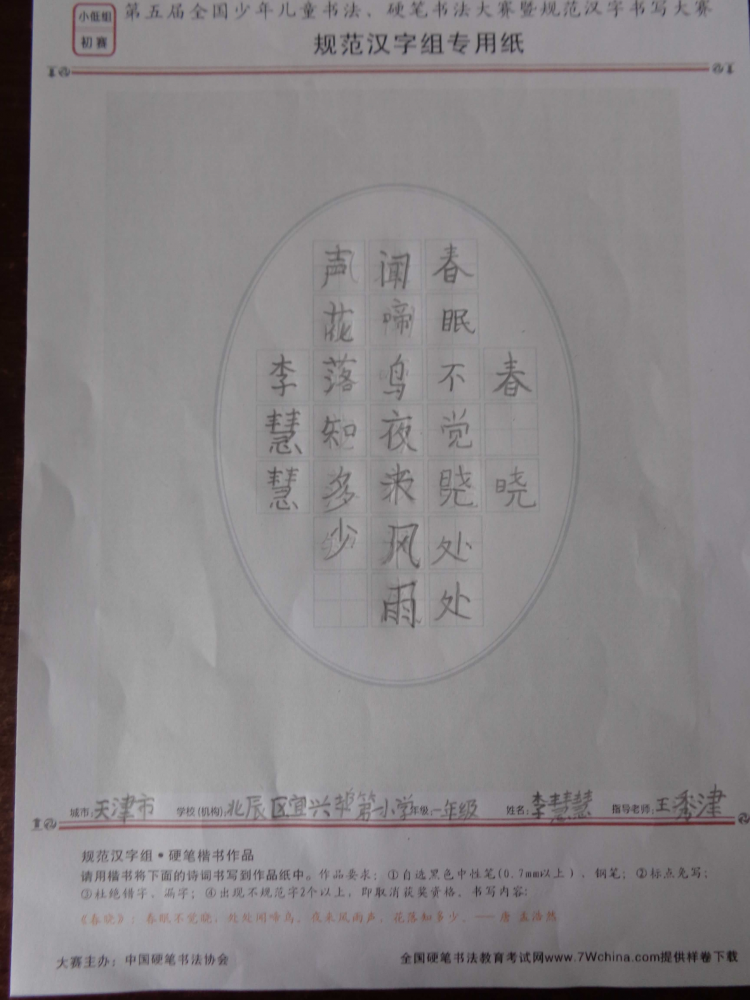 小低组
初赛
第五届全国少年儿童书法、硬笔书法大赛暨规范汉字书写大赛
规范汉字组专用纸
春晓
春眠不觉晓处处
闻啼鸟夜来风雨
声花落知多少
李慧慧
城市:天津市 学校(机构):北辰区宜兴埠第一小学 年级:一年级 姓名:李慧慧 指导老师:王秀津
规范汉字组•硬笔楷书作品
请用楷书将下面的诗词书写到作品纸中。作品要求:①自选黑色中性笔(0.7mm以上)、钢笔;②标点免写;
③杜绝错字、漏字;④出现不规范字2个以上,即取消获奖资格、书写内容:
《春晓》:春眠不觉晓,处处闻啼鸟。夜来风雨声,花落知多少。——唐 孟浩然
大赛主办:中国硬笔书法协会
全国硬笔书法教育考试网www.7Wchina.com提供样卷下载